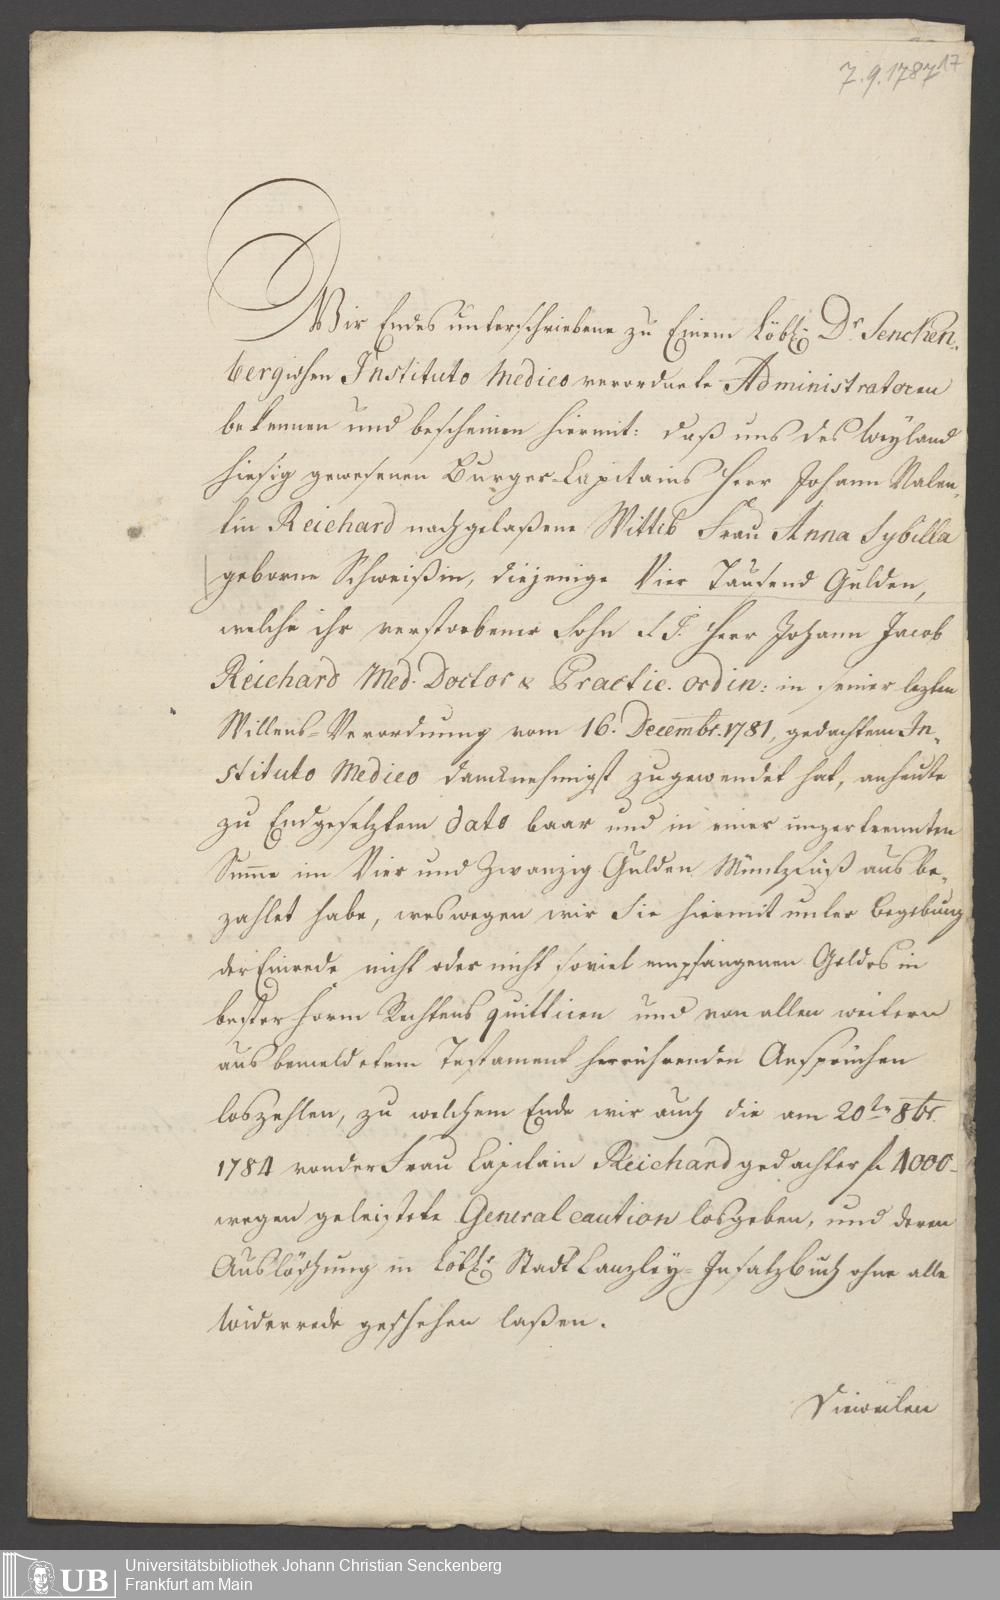 7.9.1787
17
Wir Endes unterschriebene zu Einem Löbl: Dr. Sencken-
bergischen Instituto Medico verordnete Administratoren
bekennen und bescheinen hiermit: daß uns des weyland
hiesig gewesenen Burger-Capitains Herr Johann Valen-
tin Reichard nachgelaßene Wittib Frau Anna Sybilla
geborne Schweißin, diejenige Vier Tausend Gulden,
welche ihr verstorbener Sohn S.T. Herr Johann Jacob
Reichard Med. Doctor & Practic. ordin: in seiner lezten
Willens-Verordnung vom 16. Decembr. 1781, gedachtem In-
stituto Medico dancknehmigst zugewendet hat, anheute
zu Endgesetztem dato baar und in einer unzertrennten
Sum̅e im Vier und Zwanzig Gulden Müntzfuß ausbe-
zahlet habe, weswegen wir Sie hiermit unter Begebung
der Einrede nicht oder nicht soviel empfangenen Geldes in
bester Form Rechtens quittiren und von allen weitern
aus bemeldetem Testament herrührenden Ansprüchen
loszehlen, zu welchem Ende wir auch die am 20ten 8br.
1784 von der Frau Capitain Reichard gedachter f. 4000-
wegen geleistete General caution losgeben, und deren
Auslöschung in Löbl: Stadt Canzley-Insatzbuch ohne alle
Widerrede geschehen laßen.
Dieweilen
UB
Universitätsbibliothek Johann Christian Senckenberg
Frankfurt am Main